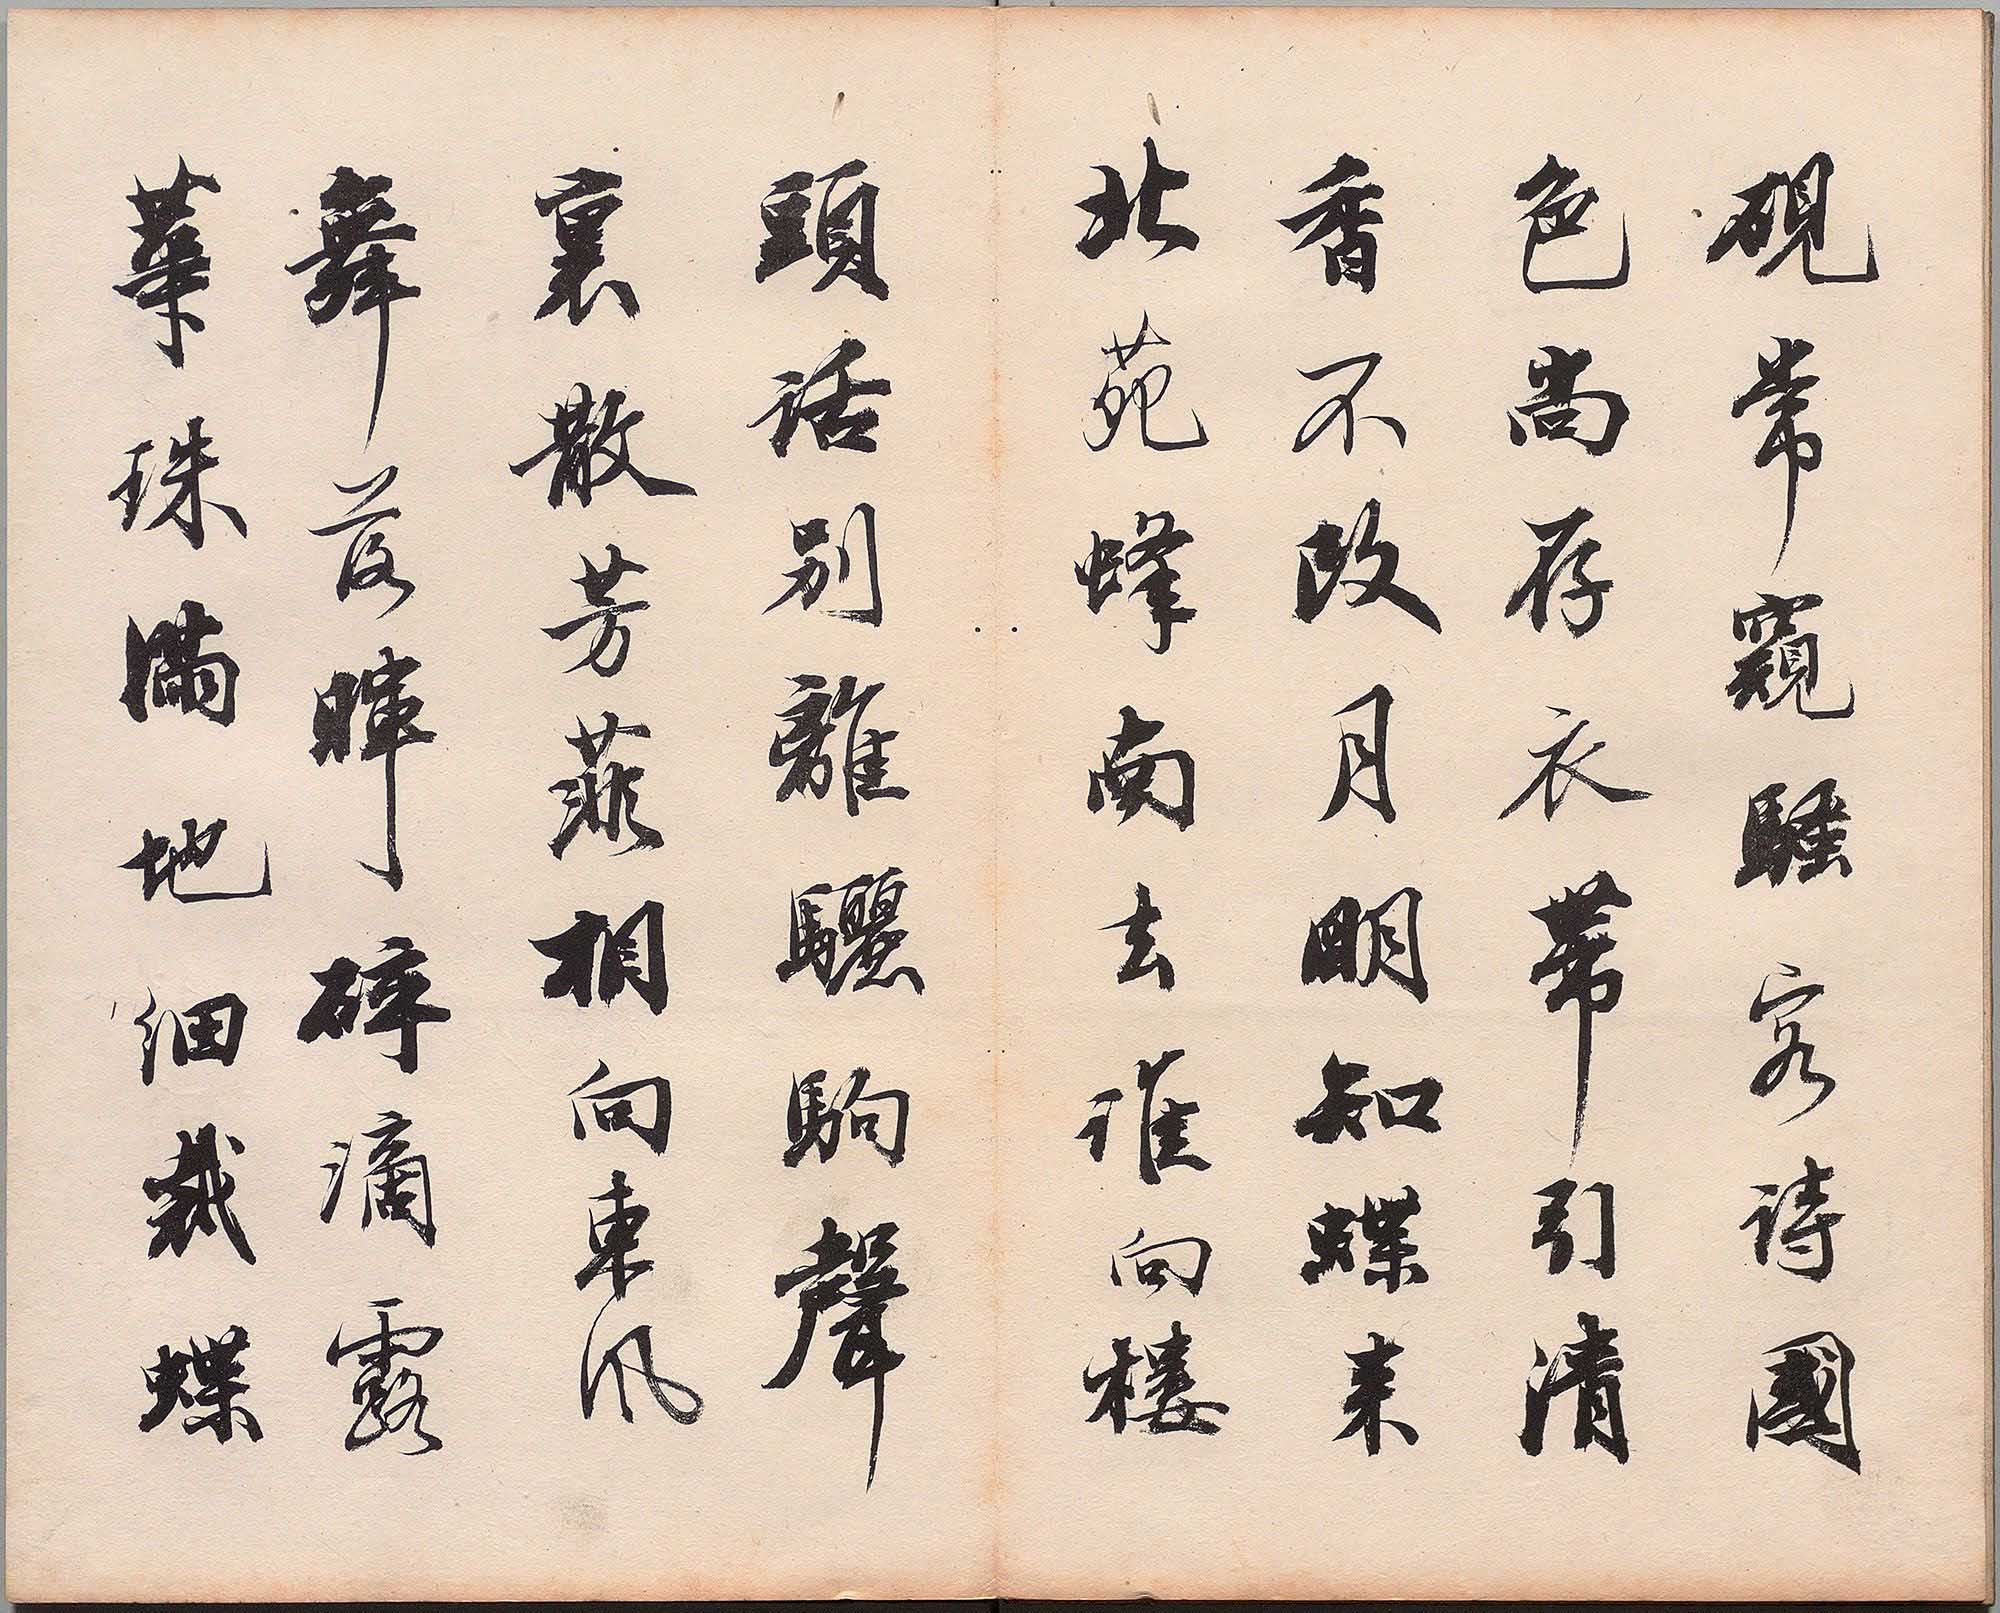 硯常窺騷客詩國
色尚存衣帶引清
香不改月明知蝶来
北苑蜂南去誰向樓
頭話別離驪駒聲
裏散芳菲相向東風
舞落暉碎滴露
華珠滿地細裁蝶